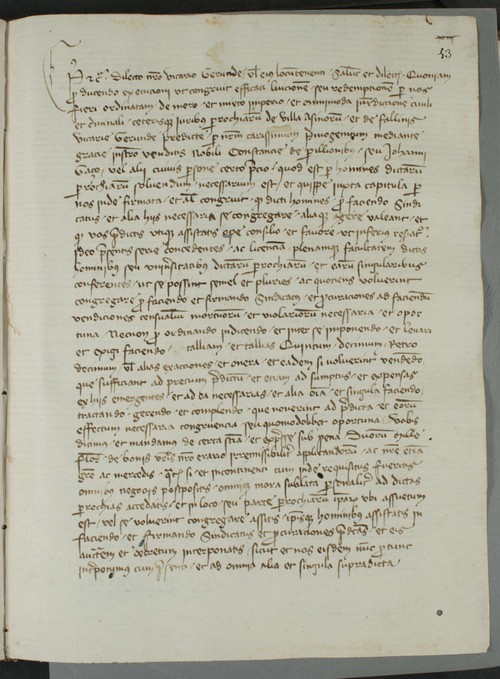 53
dilecto nostro vicario Gerunde vel eius locumtenenti Salutem et dilectionem Quoniam
ducendo execucioni ut congruit efficaci luicionem seu redempcionem per nos
fieri ordinatam de mero et mixto imperio et omnimoda iurediccione civili
et criminali ceterisque iuribus parrochiarum de villa Asinorum et de
vicarie Gerunde predicte per carissimum Primogenitum mediante
gracie instrumento venditis Nobili Constancie de seu Johanni
vel alii cuivis persone certo precio quod est per homines dictarum
parrochiarum solvendum necessarium est et quippe iuxta capitula per
nos inde firmata et congruit dicti homines pro faciendo Sindi
catus et alia hiis necessaria se congregare aliaque gerere valeant et
vos predictis assistatis ope consilio et favore ut inferius
Ideo presentis serie concedentes ac licenciam plenamque facultatem dictis
hominibus seu universitatibus dictarum parrochiarum et earum singularibus
conferentes ut se possint semel et pluries ac quociens voluerint
congregare pro faciendo et firmando Sindicatum et procuraciones ad faciendum
vendiciones censualium mortuorum et violariorum necessaria et opor
tuna Necnon pro ordinando indicendo et inter se imponendo et levari
et exigi faciendo talliam et tallias Quintum decimum
decimum vel alias exacciones et onera et eadem si voluerint vendendo
que sufficiant ad precium predictum et etiam ad sumptus et expensas
ex hiis emergentes et ad ea necessarias et alia omnia et singula faciendo
tractando gerendo et complendo que noverint ad predicta et eorum
effectum necessaria congruencia seu quomodolibet oportuna Vobis
dicimus et mandamus de certa sciencia et expresse sub pena Duorum mille
Florenorum de bonis vestris nostro erario irremissibiliter applicandorum ac nostre
gracie ac mercedis quatenus si et incontinenti cum inde requisitus fueritis
omnibus negociis postpositis omnique mora sublata personaliter ad dictas
parrochias accedatis et in loco seu parte parrochiarum ipsarum ubi assuetum
est vel se voluerint congregare assitis ipsisque hominibus assistatis in
faciendo et firmando Sindicatus et procuraciones predictas et eis
auctoritatem et decretum interponatis sicut et nos eisdem nunc pro tunc
interponimus cum et ad omnia alia et singula supradicta